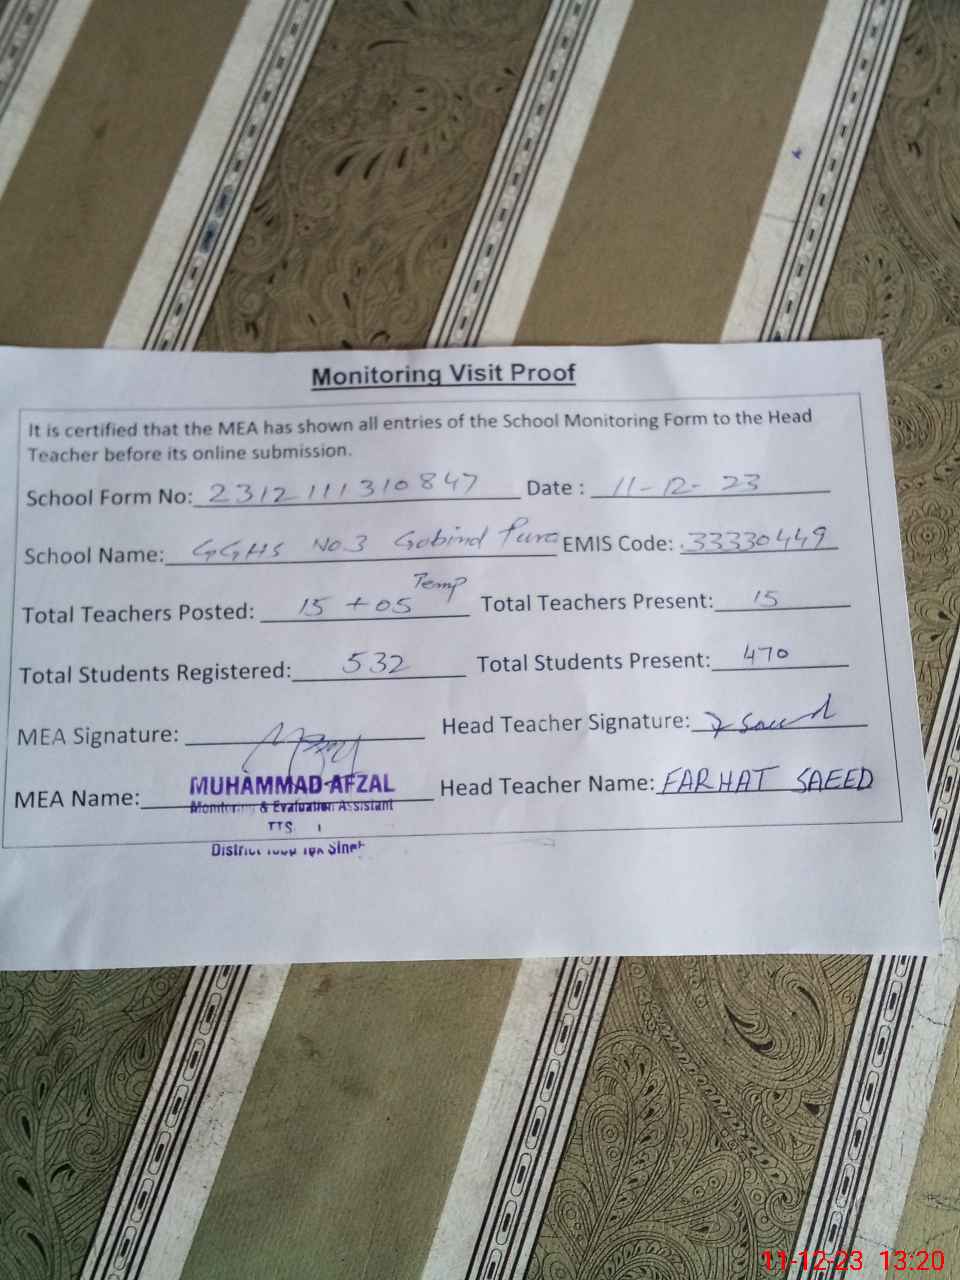 Monitoring Visit Proof
It is certified that the MEA has shown all entries of the School Monitoring Form to the Head
Teacher before its online submission.
School Form No: 2312111310847 Date : 11-12-23
School Name: GGHS No.3 Gobind Pura EMIS Code: 33330449
Temp
Total Teachers Posted: 15 + 05 Total Teachers Present: 15
Total Students Registered: 532 Total Students Present: 470
MEA Signature: Head Teacher Signature: Saeed
MEA Name: MUHAMMAD AFZAL Head Teacher Name: FARHAT SAEED
Monitoring & Evaluation Assistant
TTS
District
11-12-23 13:20